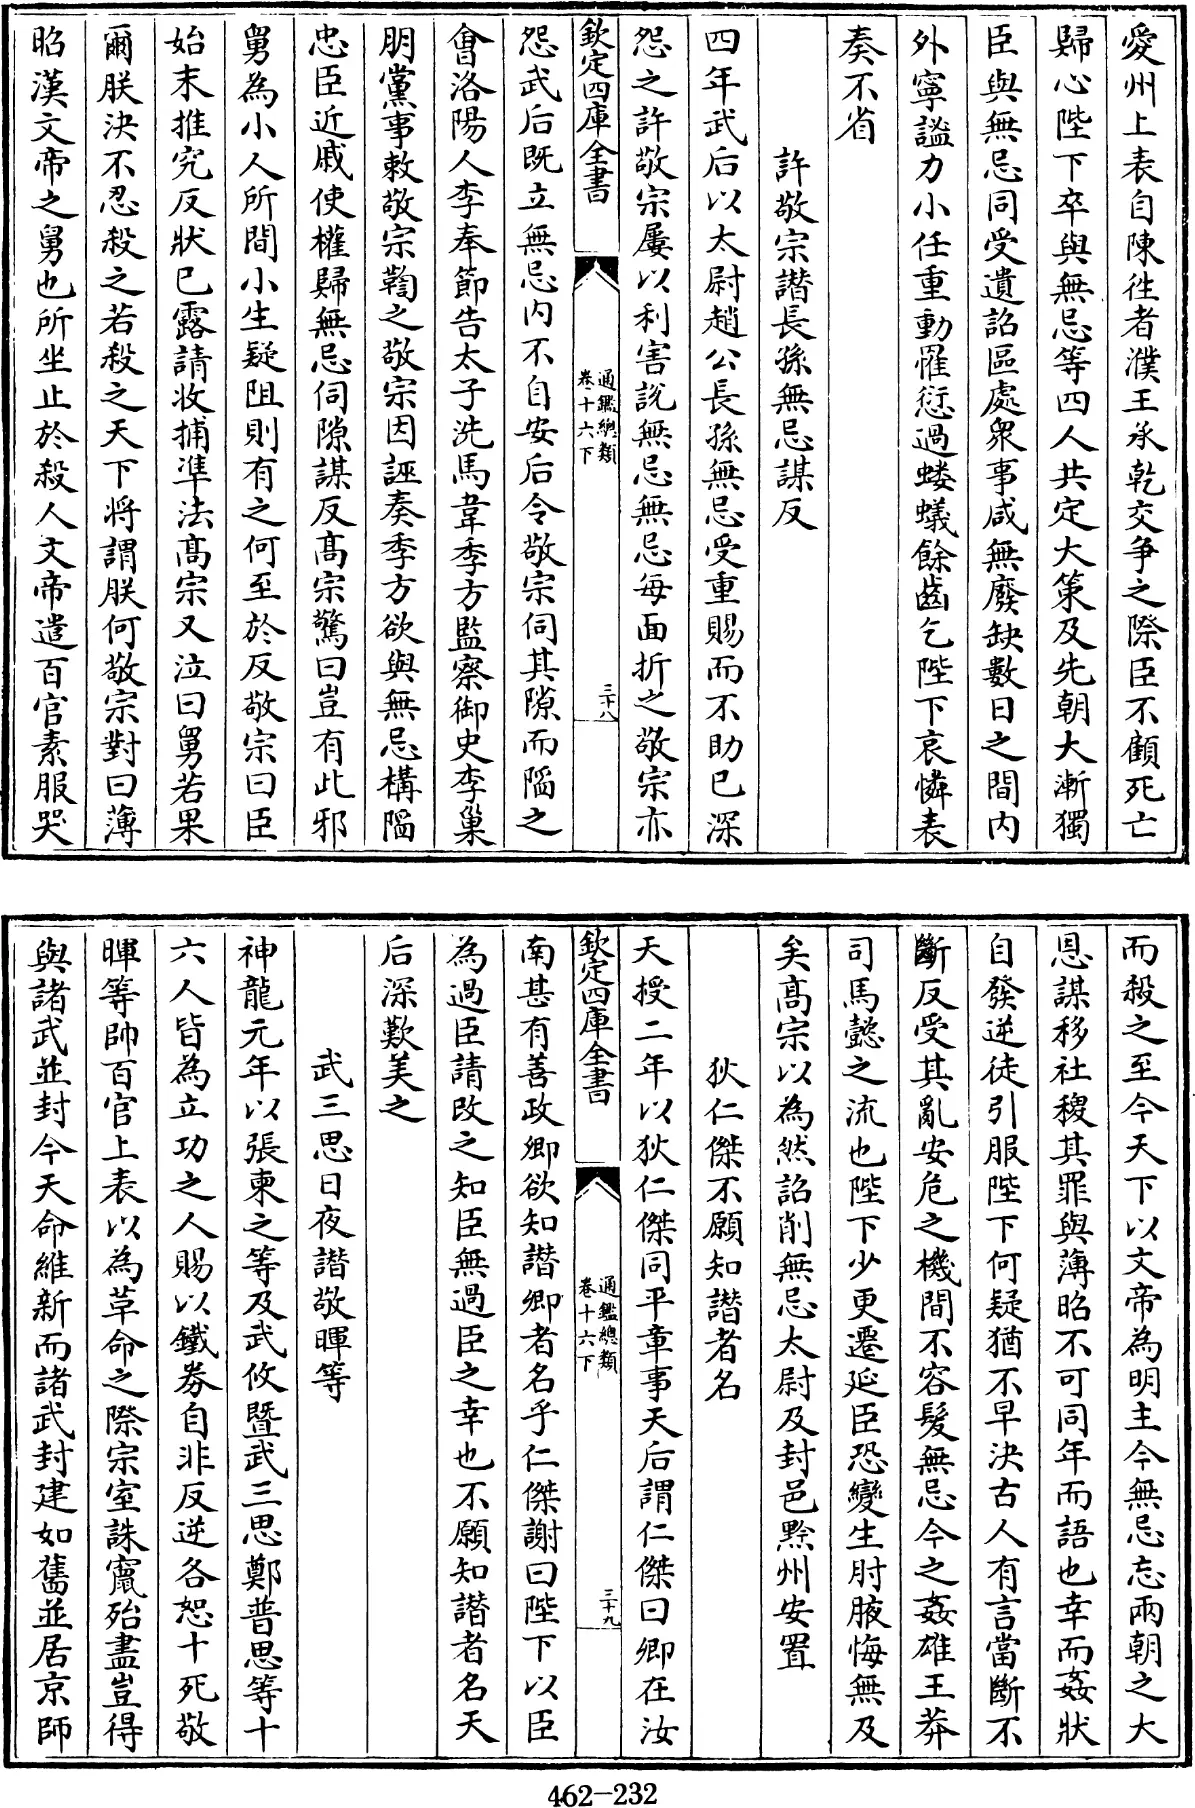 愛州上表自陳徃者濮王承乾交爭之際臣不顧死亡
歸心陛下卒與無忌等四人共定大策及先朝大漸獨
臣與無忌同受遺詔區處衆事咸無廢缺數日之間内
外寧謐力小任重動罹愆過螻蟻餘齒乞陛下哀憐表
奏不省
許敬宗譖長孫無忌謀反
四年武后以太尉趙公長孫無忌受重賜而不助已深
怨之許敬宗屢以利害説無忌無忌每面折之敬宗亦
欽定四庫全書
通鑑總類
卷十六下
三十八
怨武后既立無忌内不自安后令敬宗伺其隙而䧟之
會洛陽人李奉節告太子洗馬韋季方監察御史李巢
朋黨事敕敬宗鞫之敬宗因誣奏季方欲與無忌構䧟
忠臣近戚使權歸無忌伺隙謀反髙宗驚曰豈有此邪
舅為小人所間小生疑阻則有之何至於反敬宗曰臣
始末推究反狀已露請收捕凖法髙宗又泣曰舅若果
爾朕決不忍殺之若殺之天下將謂朕何敬宗對曰薄
昭漢文帝之舅也所坐止於殺人文帝遣百官素服哭
而殺之至今天下以文帝為明主今無忌忘兩朝之大
恩謀移社稷其罪與薄昭不可同年而語也幸而姦狀
自發逆徒引服陛下何疑猶不早決古人有言當斷不
斷反受其亂安危之機間不容髮無忌今之姦雄王莽
司馬懿之流也陛下少更遷延臣恐變生肘腋悔無及
矣髙宗以為然詔削無忌太尉及封邑黔州安置
狄仁傑不願知譖者名
天授二年以狄仁傑同平章事天后謂仁傑曰卿在汝
欽定四庫全書
通鑑總類
卷十六下
三十九
南甚有善政卿欲知譖卿者名乎仁傑謝曰陛下以臣
為過臣請改之知臣無過臣之幸也不願知譖者名天
后深歎美之
武三思日夜譖敬暉等
神龍元年以張柬之等及武攸暨武三思鄭普思等十
六人皆為立功之人賜以鐵劵自非反逆各恕十死敬
暉等帥百官上表以為革命之際宗室誅竄殆盡豈得
與諸武並封今天命維新而諸武封建如舊並居京師
462-232